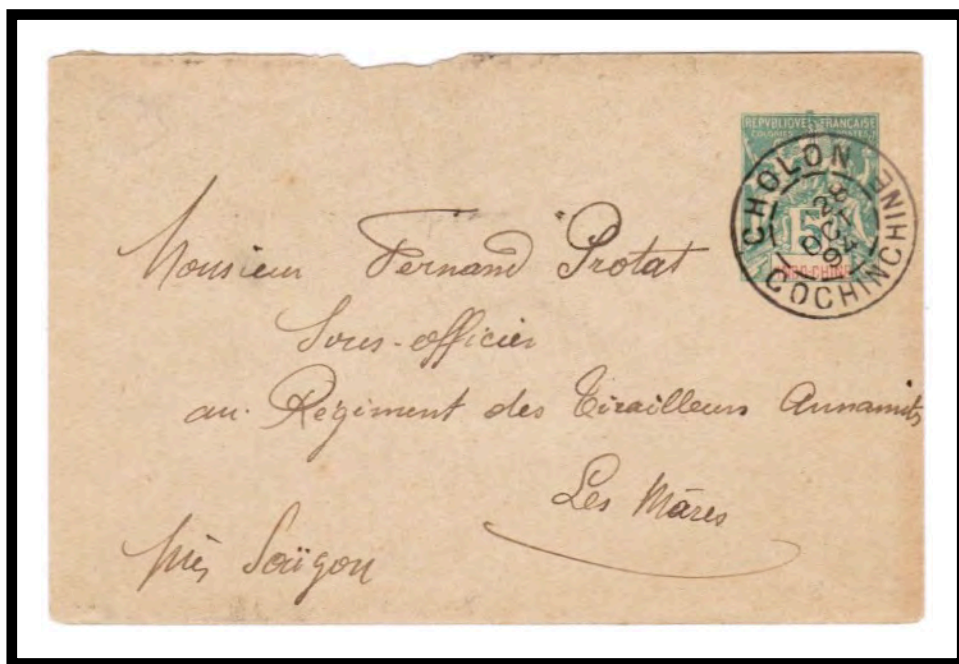 REPVBLIQVE FRANÇAISE
COLONIES POSTES
5
INDO-CHINE
CHOLON
COCHINCHINE
Monsieur Fernand Protat
Sous-officier
au Régiment des Tirailleurs Annamits
Les Mâres
près Saïgon